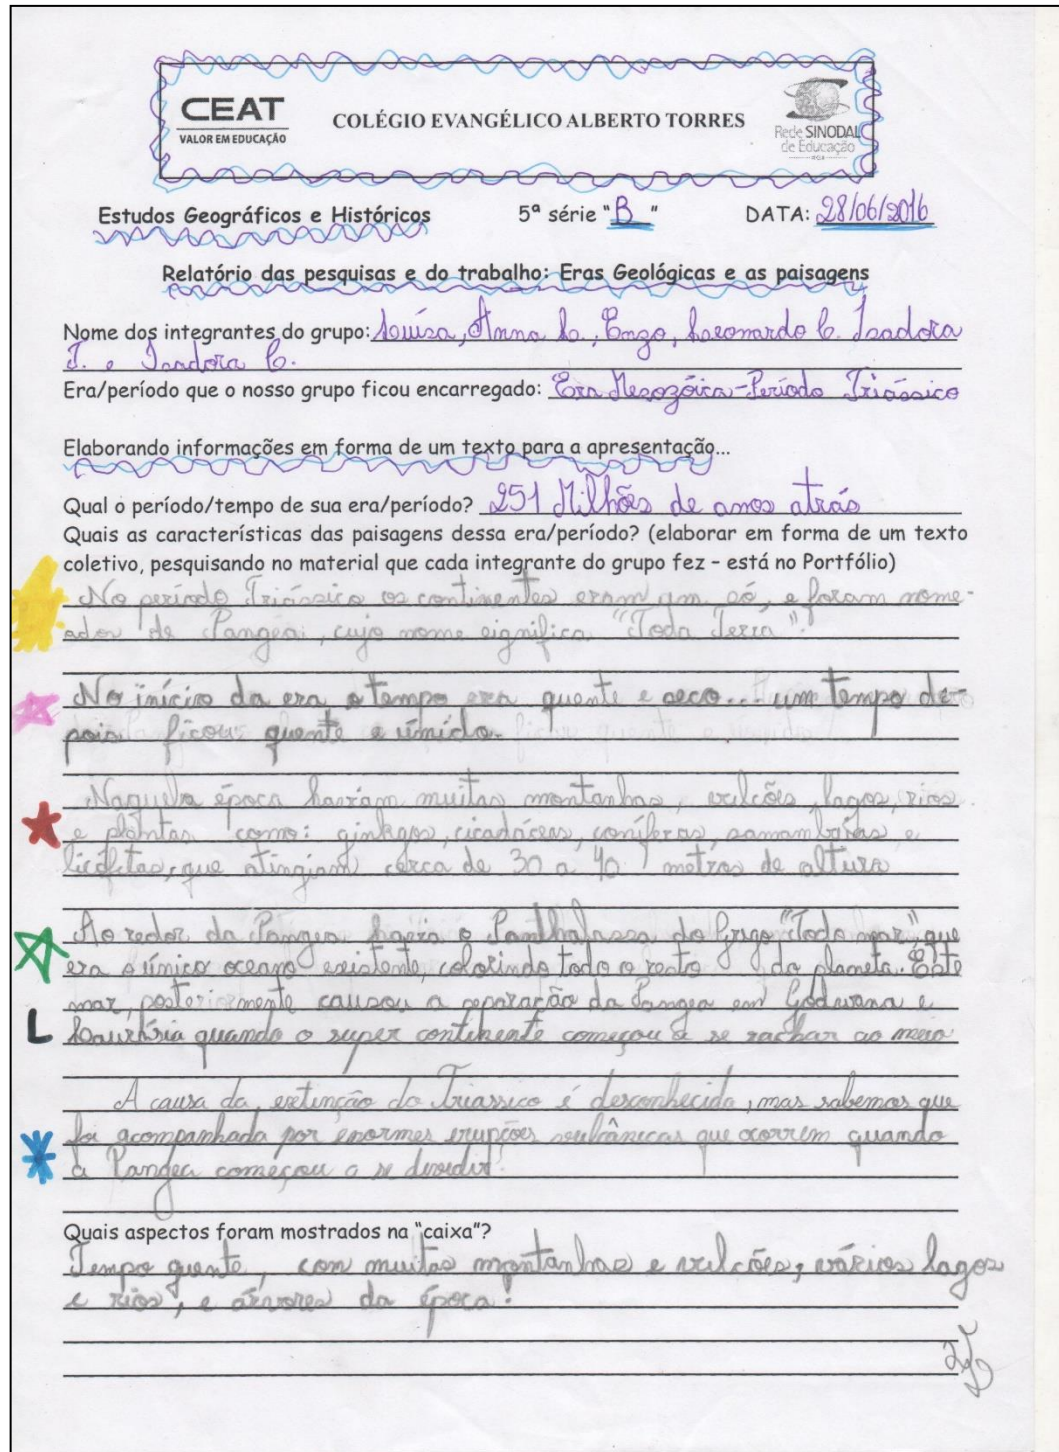 CEAT
VALOR EM EDUCAÇÃO
COLÉGIO EVANGÉLICO ALBERTO TORRES
Rede SINODAL
de Educação
Estudos Geográficos e Históricos 5ª série "B" DATA: 28/06/2016
Relatório das pesquisas e do trabalho: Eras Geológicas e as paisagens
Nome dos integrantes do grupo: Luísa, Anna L., Enzo, Leonardo C. Isadora
T. e Isadora C.
Era/período que o nosso grupo ficou encarregado: Era Mesozóica-Período Triássico
Elaborando informações em forma de um texto para a apresentação...
Qual o período/tempo de sua era/período? 251 Milhões de anos atrás
Quais as características das paisagens dessa era/período? (elaborar em forma de um texto
coletivo, pesquisando no material que cada integrante do grupo fez - está no Portfólio)
No período Triássico os continentes eram um só, e foram nome-
ador de Pangea, cujo nome significa "Toda Terra".
No início da era o tempo era quente e seco... um tempo de-
pois ficou quente e úmido.
Naquela época haviam muitas montanhas, vulcões, lagos, rios
e plantas como: ginkgos, cicadáceas, coníferas, samambaias, e
licófitas, que atingiam cerca de 30 a 40 metros de altura
Ao redor da Pangea havia o Panthalassa do Grego "Todo mar", que
era o único oceano existente, colorindo todo o resto do planeta. Este
mar, posteriormente causou a separação da Pangea em Godwana e
L Laurásia quando o super continente começou a se rachar ao meio
A causa da extinção do Triassico é desconhecida, mas sabemos que
foi acompanhada por enormes erupções vulcânicas que ocorrem quando
a Pangea começou a se dividir.
Quais aspectos foram mostrados na "caixa"?
Tempo quente, com muitas montanhas e vulcões, vários lagos
e rios, e árvores da época!